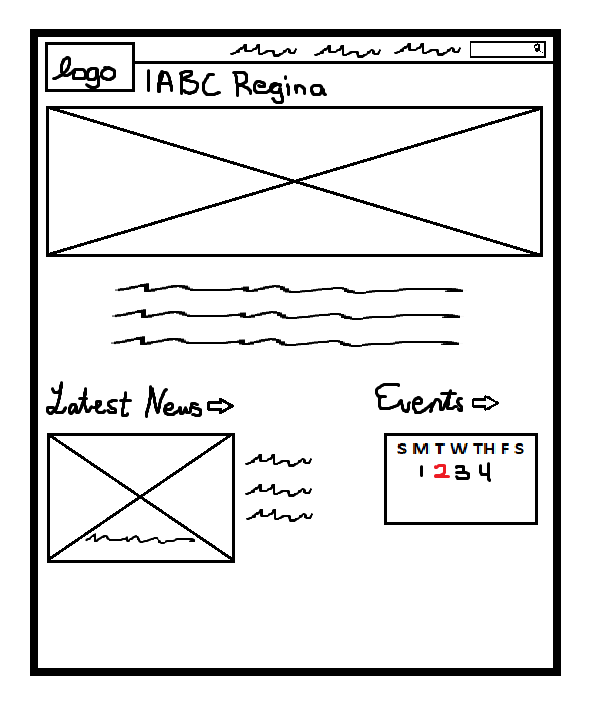 logo
IABC Regina
Latest News
Events
S M T W TH F S
1 2 3 4